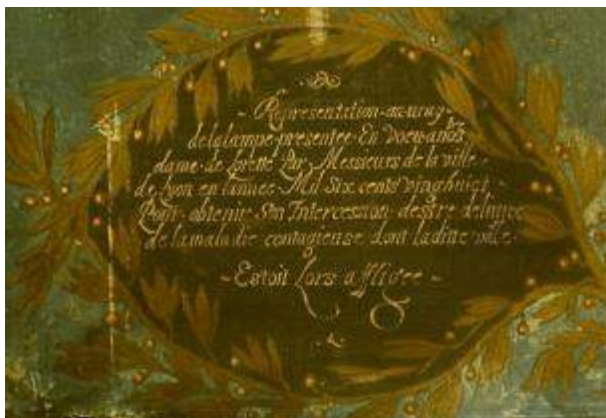 Representation au vray
de la lampe presentée En voeu a nostre
dame de Lorette Par Messieurs de la ville
de Lyon en l'annee Mil Six cents vingt huict
Pour obtenir Son Intercession destre delivree
de la maladie contagieuse dont laditte ville
Estoit Lors affligee